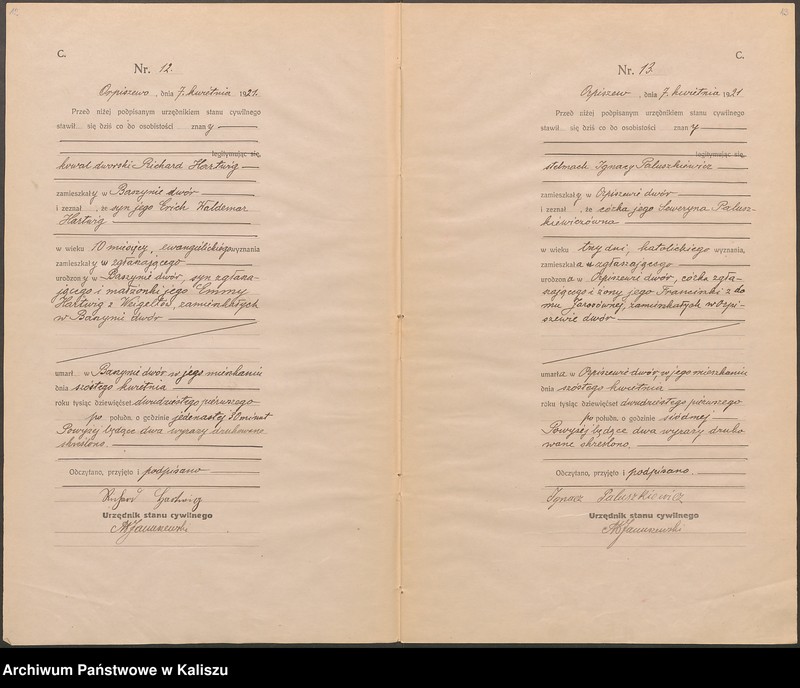 C.
Nr. 12.
Orpiszewo, dnia 7. kwietnia 1921.
Przed niżej podpisanym urzędnikiem stanu cywilnego
stawił... się dziś co do osobistości znany
legitymując się,
kowal dworski Richard Hartwig
zamieszkały w Baszynie dwór
i zeznał, że syn jego Erich Waldemar
Hartwig
w wieku 10 miesięcy, ewangelickiego wyznania
zamieszkały w zgłaszającego
urodzony w Baszynie dwór, syn zgłasza-
jącego i małżonki jego Emmy
Hartwig z zamieszkałych
w Baszynie dwór
umarł w Baszynie dwór w jego mieszkaniu
dnia szóstego kwietnia
roku tysiąc dziewięćset dwudziestego pierwszego
po połudn. o godzinie jedenastej minut
Powyżej będące dwa wyrazy drukowane
skreślono.
Odczytano, przyjęto i podpisano
Richard Hartwig
Urzędnik stanu cywilnego
C.
Nr. 13.
Orpiszew, dnia 7. kwietnia 1921
Przed niżej podpisanym urzędnikiem stanu cywilnego
stawił... się dziś co do osobistości znany
legitymując się,
stelmach Ignacy Paluszkiewicz
zamieszkały w Orpiszewie dwór
i zeznał, że córka jego Seweryna Palusz-
kiewiczówna
w wieku trzy dni, katolickiego wyznania,
zamieszkała w zgłaszającego
urodzona w Orpiszewie dwór, córka zgła-
szającego i żony jego Franciszki z do
mu zamieszkałych w Orpi-
szewie dwór
umarła w Orpiszewie dwór, w jego mieszkaniu
dnia szóstego kwietnia
roku tysiąc dziewięćset dwudziestego pierwszego
po połudn. o godzinie siódmej
Powyżej będące dwa wyrazy druko
wane skreślono.
Odczytano, przyjęto i podpisano.
Ignacz Paluszkiewicz
Urzędnik stanu cywilnego
Archiwum Państwowe w Kaliszu